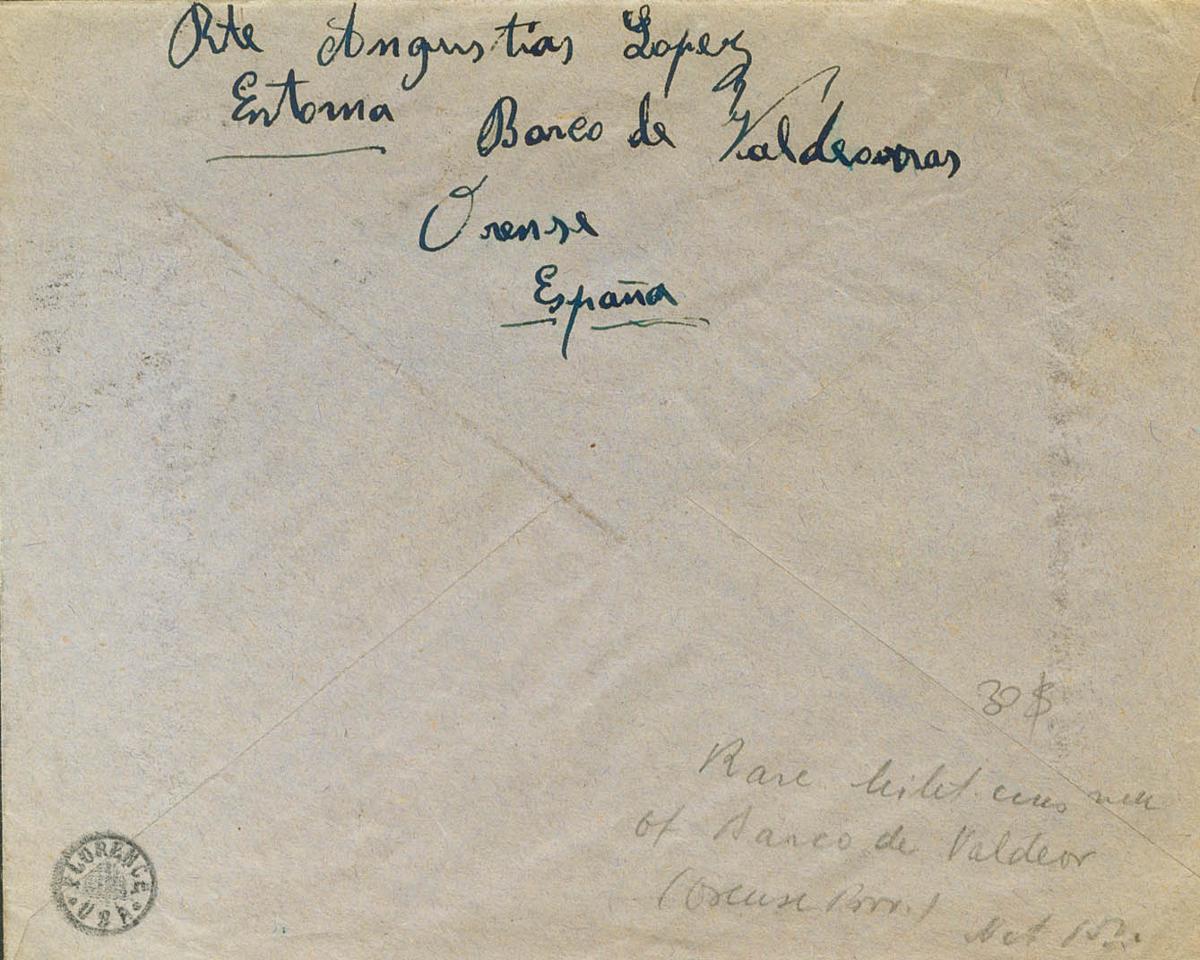 Rte Angustias Lopez
Entoma Barco de Valdeorras
Orense
España
30 $
Rare milit. cens
of Barco de Valdeor
(Orense Prov.)
Net
FLORENCE
USA